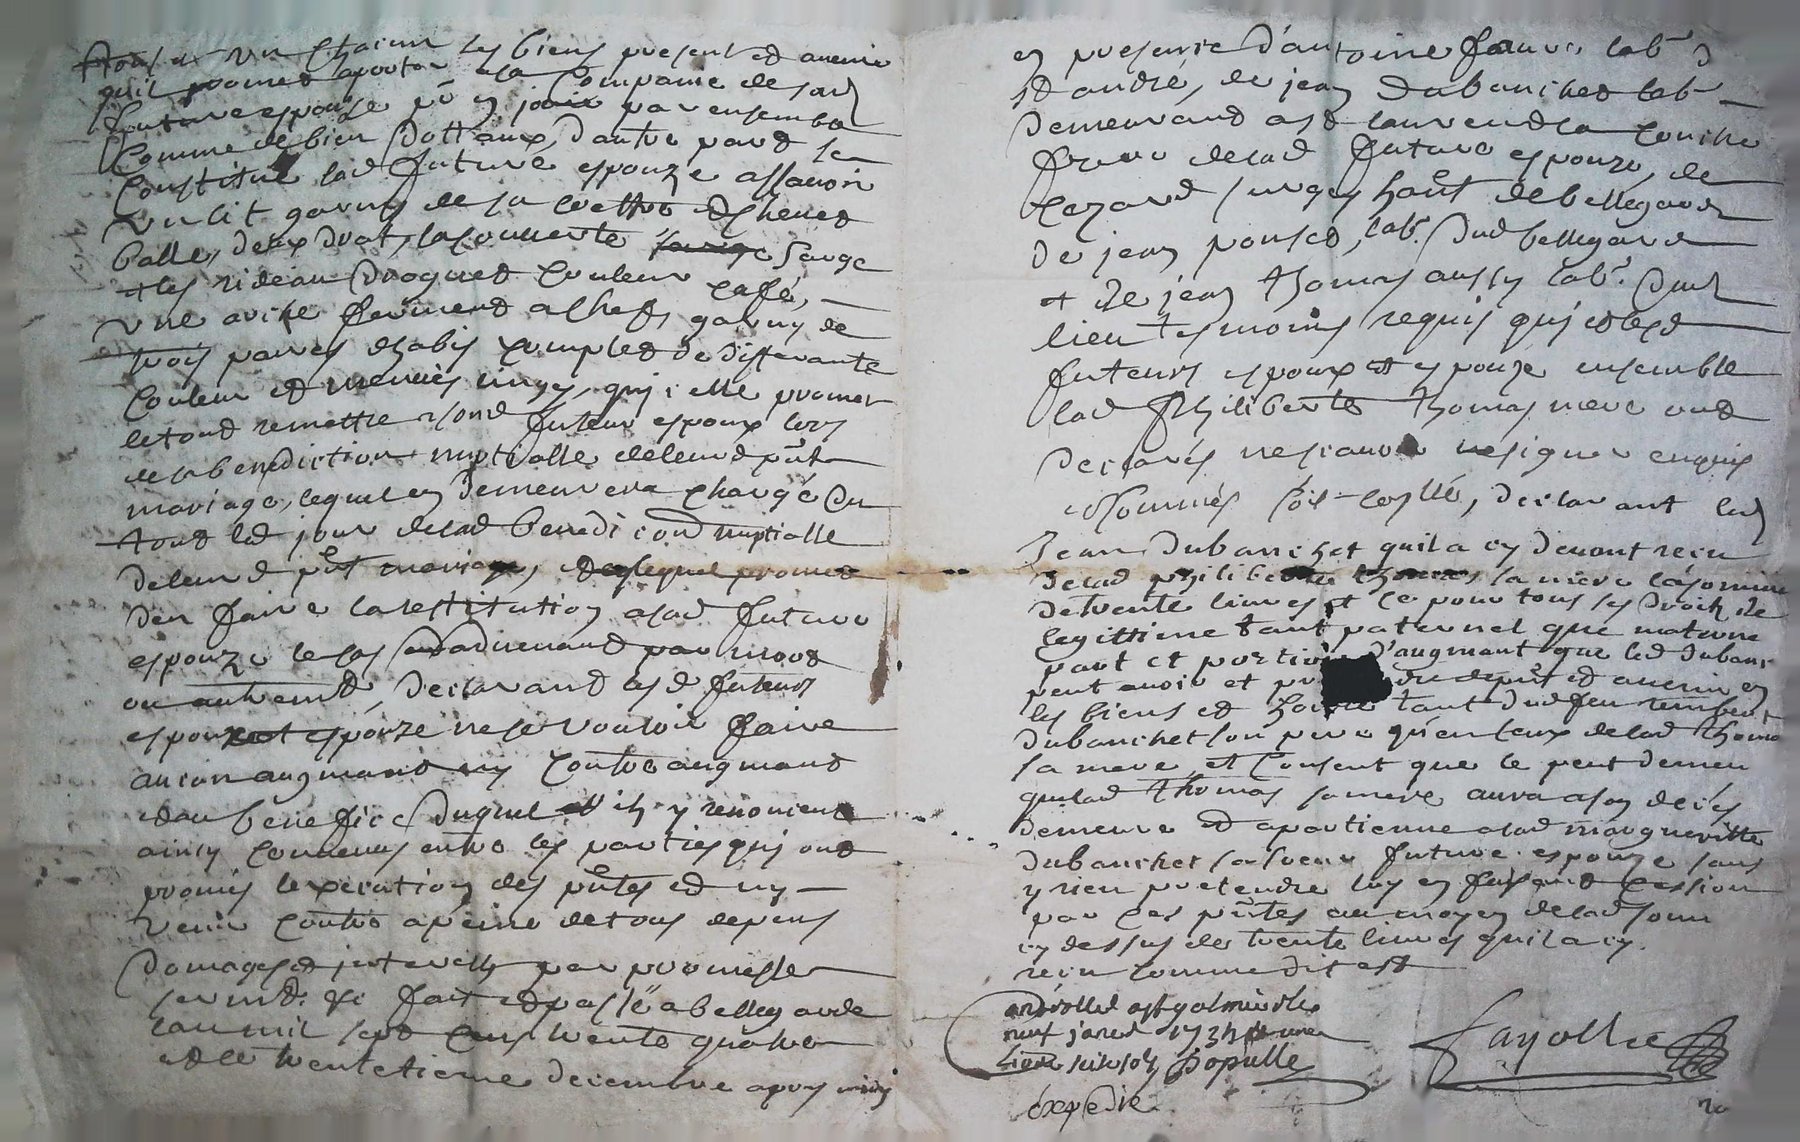 tous et un chacun ses biens present et avenir
quil promet aporter a la Compaine de sad
future espouze pr en jouir par ensemble
Comme de bien dottaux, dautre part se
Constitue lad future espouze assavoir
un lit garny de sa coettre Chevet
balle, deux drat, la couverte sarge
et les rideau Droguet Couleur caffé,
une arche fermant a cheff garny de
trois paires dhabis Complet de differante
Couleur et menues linges, quj elle promet
le tout remettre a sond futeur espoux lors
de la benediction nuptialle de leurd put
mariage, lequel en demeurera chargé du
tout led jour de lad benediction nuptialle
de leurd put mariage, lequel promet
den faire la restitution a lad future
espouze le cas advenant par mort
ou autremt, Declarand lesd futeurs
espoux et espouze ne se vouloir faire
aucun augmant ny Contre augmant
et au benefice duquel ils y renoncent
aincy Convenus entre les parties quj ont
promis lexecution des pntes et ny
venir Contre a peine de tous depens
Domages et jnterests par promesse
sermt. &c fait et passé a bellegarde
lan mil sept cens trente quatre
et le trentetieme decembre apres midj
en presence d'antoine faure labr d
st andré, de jean Dubanchet labr
demeurand a st laurend la Conche
frere de lad future espouze, de
Cezard hañt de bellegarde
de jean ponset, labr. dud bellegarde
et de jean thomas aussy labr. dud
lieu tesmoins requis quj et lesd
futeurs espoux et espouze ensemble
lad philiberte thomas mere ont
declarés ne scavoir ne signer enquis
et sommés soit-cellé, declarant led
Jean dubanchet quil a cy devant receu
de lad philiberte thomas sa mere la somme
de trente livres et ce pour tous ses droits de
legittime tant paternel que materne
part et portion d'augmant que led dubanc
peut avoir et put et avenir en
les biens et hoirie tant dud feu
dubanchet son pere qu'en ceux de lad thoma
sa mere et Consent que le peut demeu
que lad thomas sa mere aura a son deces
demeure et apartienne a lad margueritte
dubanchet sa soeur future espouze sans
y rien pretendre luy en faisand cession
par ces pntes au moyen de lad somm
cy dessus de trente livres quil a cy
receu comme dit est
controllet a st galmier le
neuf janvr 1735
livre
Fayolle
Expedié